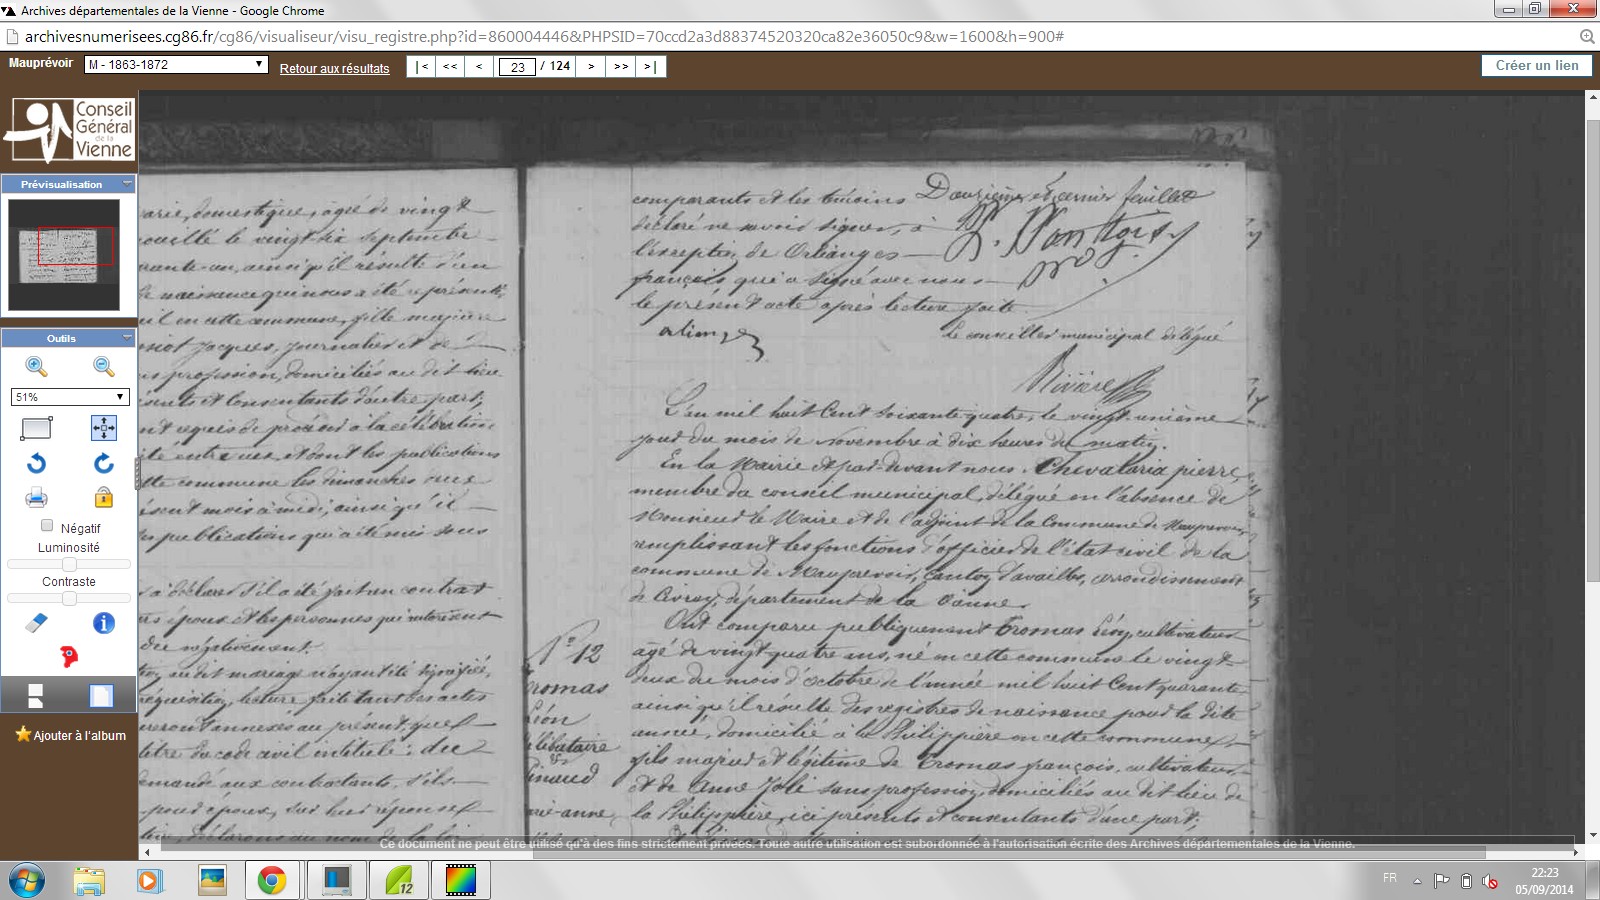 Archives départementales de la Vienne - Google Chrome
archivesnumerisees.cg86.fr/cg86/visualiseur/visu_registre.php?id=860004446&PHPSID=70ccd2a3d88374520320ca82e36050c9&w=1600&h=900#
Mauprévoir
M - 1863-1872
Retour aux résultats
|< << < 23 / 124 > >> >|
Créer un lien
Conseil
Général
de la
Vienne
Prévisualisation
Outils
51%
Négatif
Luminosité
Contraste
Ajouter à l'album
domestique, âgé de vingt
le vingt six septembre
ainsi qu'il résulte d'un
naissance qui nous a été représenté,
en cette commune, fille majeure
Jacques, journalier et de
profession, domiciliés au dit lieu
et consentants d'autre part;
requis de procéder à la célébration
entre eux, et dont les publications
commune les dimanches
mois à midi, ainsi qu'il
publications qui a été mis sous
a déclarer s'il a été fait un contrat
époux et les personnes qui autorisent
négativement.
au dit mariage n'ayant été signifiée,
réquisition, lecture faite tant des actes
annexés au présent, que
titre du code civil intitulé: du
demandé aux contractants, s'ils
pour époux, sur leur réponse
déclarons au nom de la loi
comparants et les témoins
déclaré ne savoir signer, à
l'exception de Orlianges
françois qui a signé avec nous
le présent acte après lecture faite
Douzième et dernier feuillet
Le conseiller municipal délégué
Rivière
L'an mil huit cent soixante quatre, le vingt-unième
jour du mois de Novembre à dix heures du matin.
En la Mairie et par-devant nous. Chevalaria pierre,
membre du conseil municipal, délégué en l'absence de
Monsieur le Maire et de l'adjoint de la Commune de Mauprevoir,
remplissant les fonctions d'officier de l'état civil de la
commune de Mauprevoir, canton d'availles, arrondissement
de Civray, département de la Vienne.
Ont comparu publiquement Tromas Léon, cultivateur
âgé de vingt-quatre ans, né en cette commune le vingt
deux du mois d'Octobre de l'année mil huit Cent quarante
ainsi qu'il résulte des registres de naissance pour la dite
année, domicilié à la Philippière en cette commune,
fils majeur et légitime de Tromas françois, cultivateur,
et de Anne Joli sans profession, domiciliés au dit lieu de
la Philippière, ici présents et consentants d'une part;
N° 12
Tromas
Léon
célibataire
&
Pinaud
marie-anne
Ce document ne peut être utilisé qu'à des fins strictement privées. Toute autre utilisation est subordonnée à l'autorisation écrite des Archives départementales de la Vienne.
FR
22:23
05/09/2014